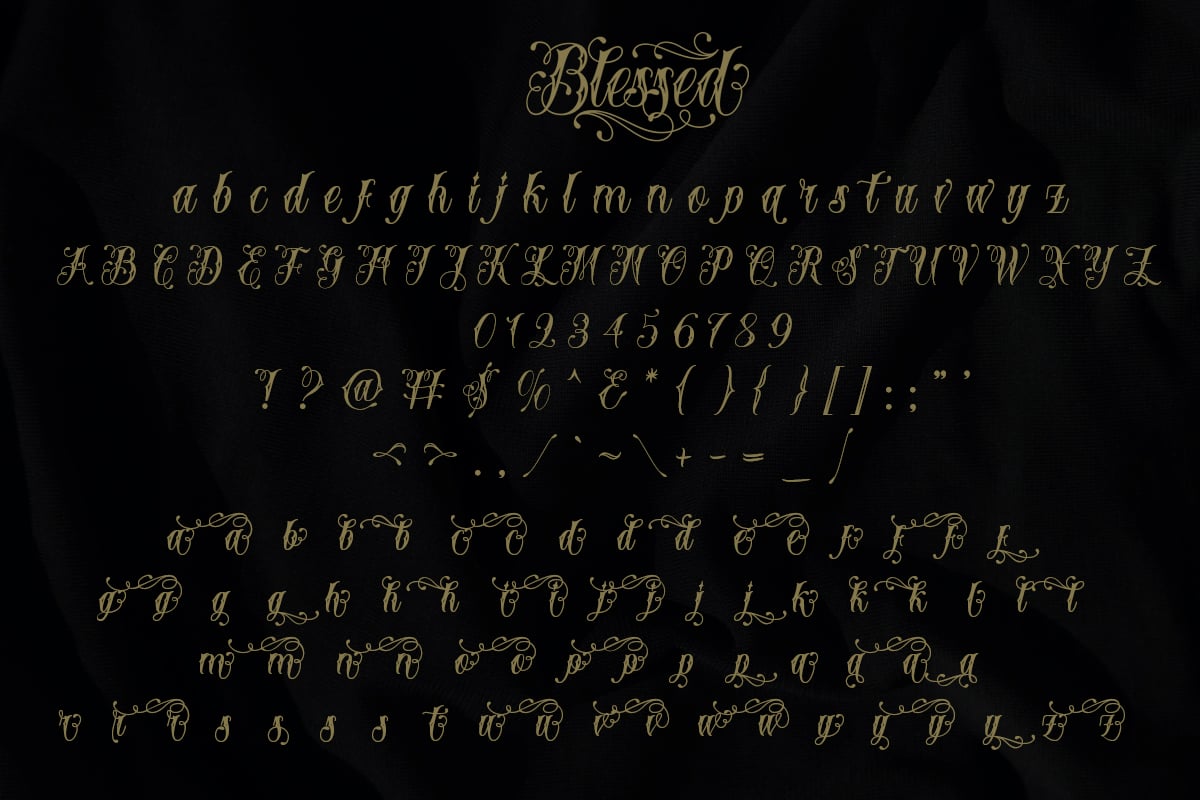 Blessed
a b c d e f g h i j k l m n o p q r s t u v w y z
A B C D E F G H I J K L M N O P Q R S T U V W X Y Z
0 1 2 3 4 5 6 7 8 9
! ? @ # $ % ^ & * ( ) { } [ ] : ; ” ’
< > . , / ` ~ \ + - = _ /
a a b b b c c d d d e e f f f f
g g g g h h h i i j j j j k k k l l l
m m n n o o p p p p q q q q
r r r s s s s t u u v v w w y y y y z z